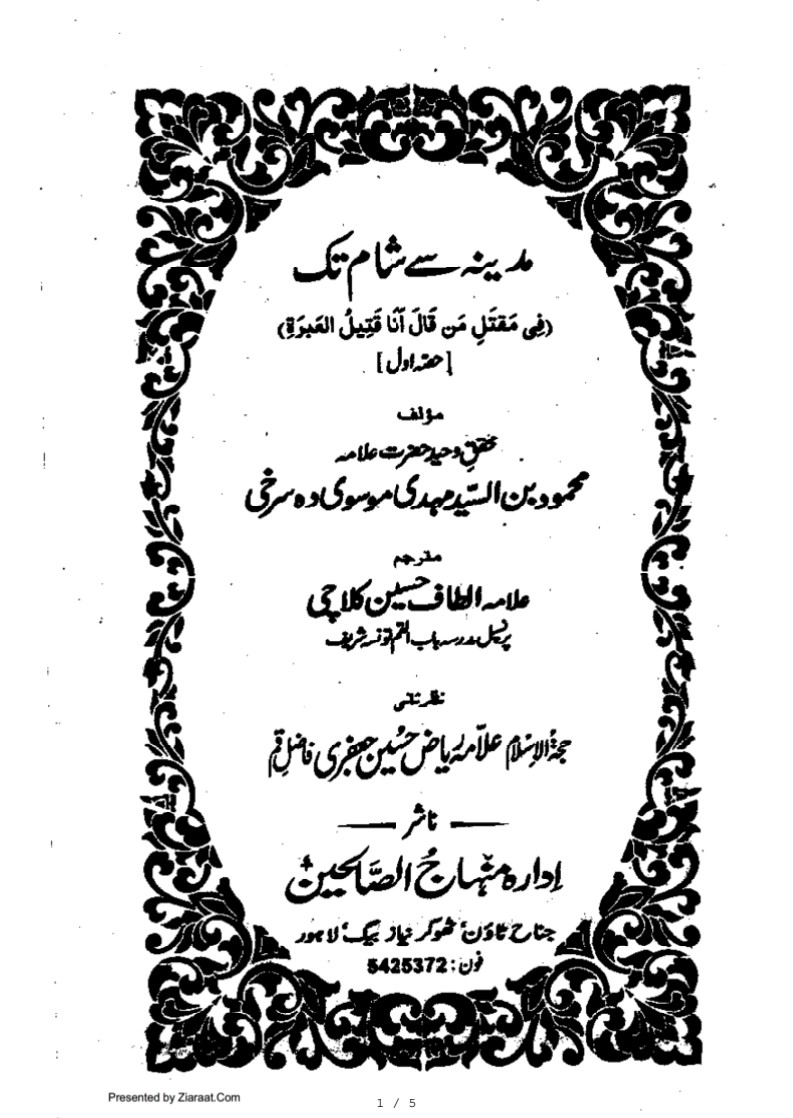 مدینہ سے شام تک
(فِی مَقتَلِ مَن قَالَ أنَا قَتِیلُ العَبرَةِ)
[حصّہ اول]
مؤلف
محققِ وحید حضرت علامہ
محمود بن السّید مہدی موسوی دہ سرخی
مترجم
علامہ الطاف حسین کلاچی
پرنسپل مدرسہ باب تونسہ شریف
نظرثانی
حجۃ الاسلام علاّمہ ریاض حسین جعفری فاضلِ قم
ناشر
ادارہ منہاج الصّالحین
جناح ٹاؤن ٹھوکر نیاز بیگ لاہور
فون: 5425372
Presented by Ziaraat.Com
1 / 5